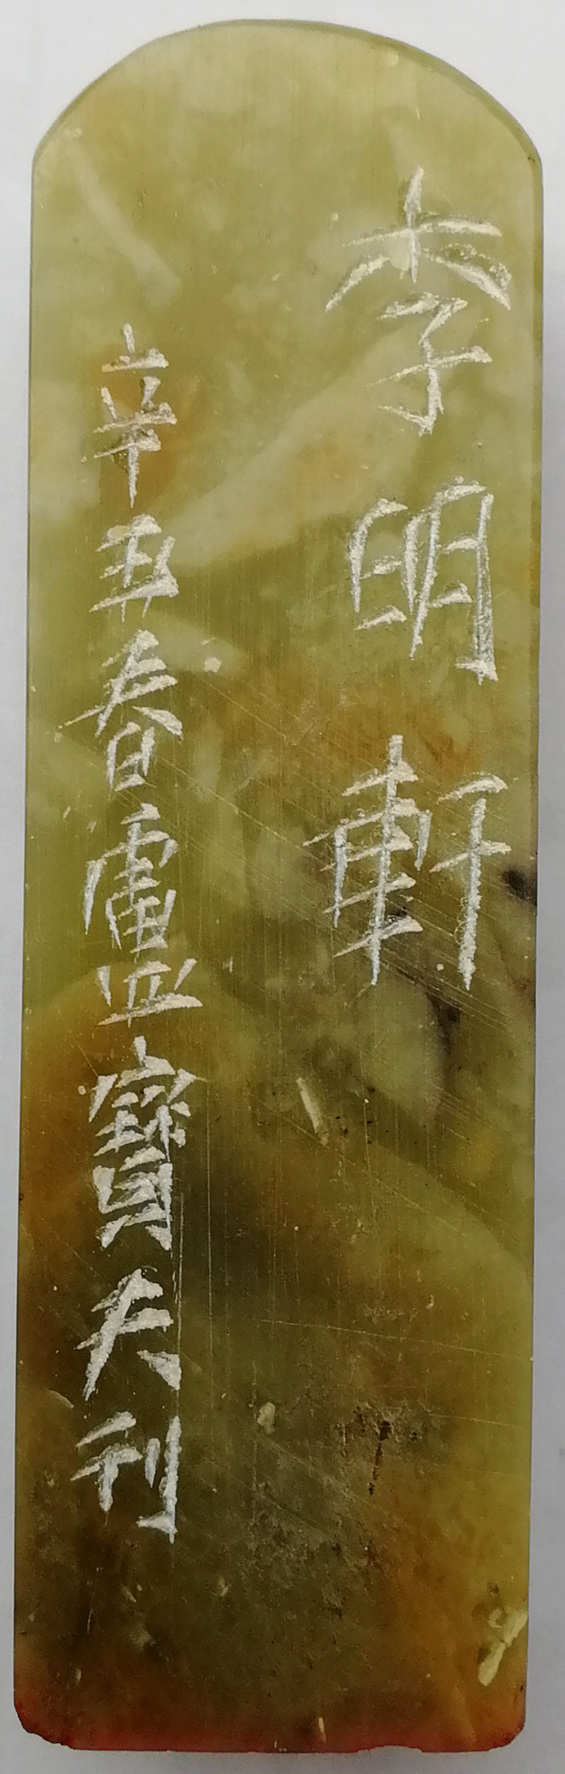 李明軒
辛丑春盧寶夫刊